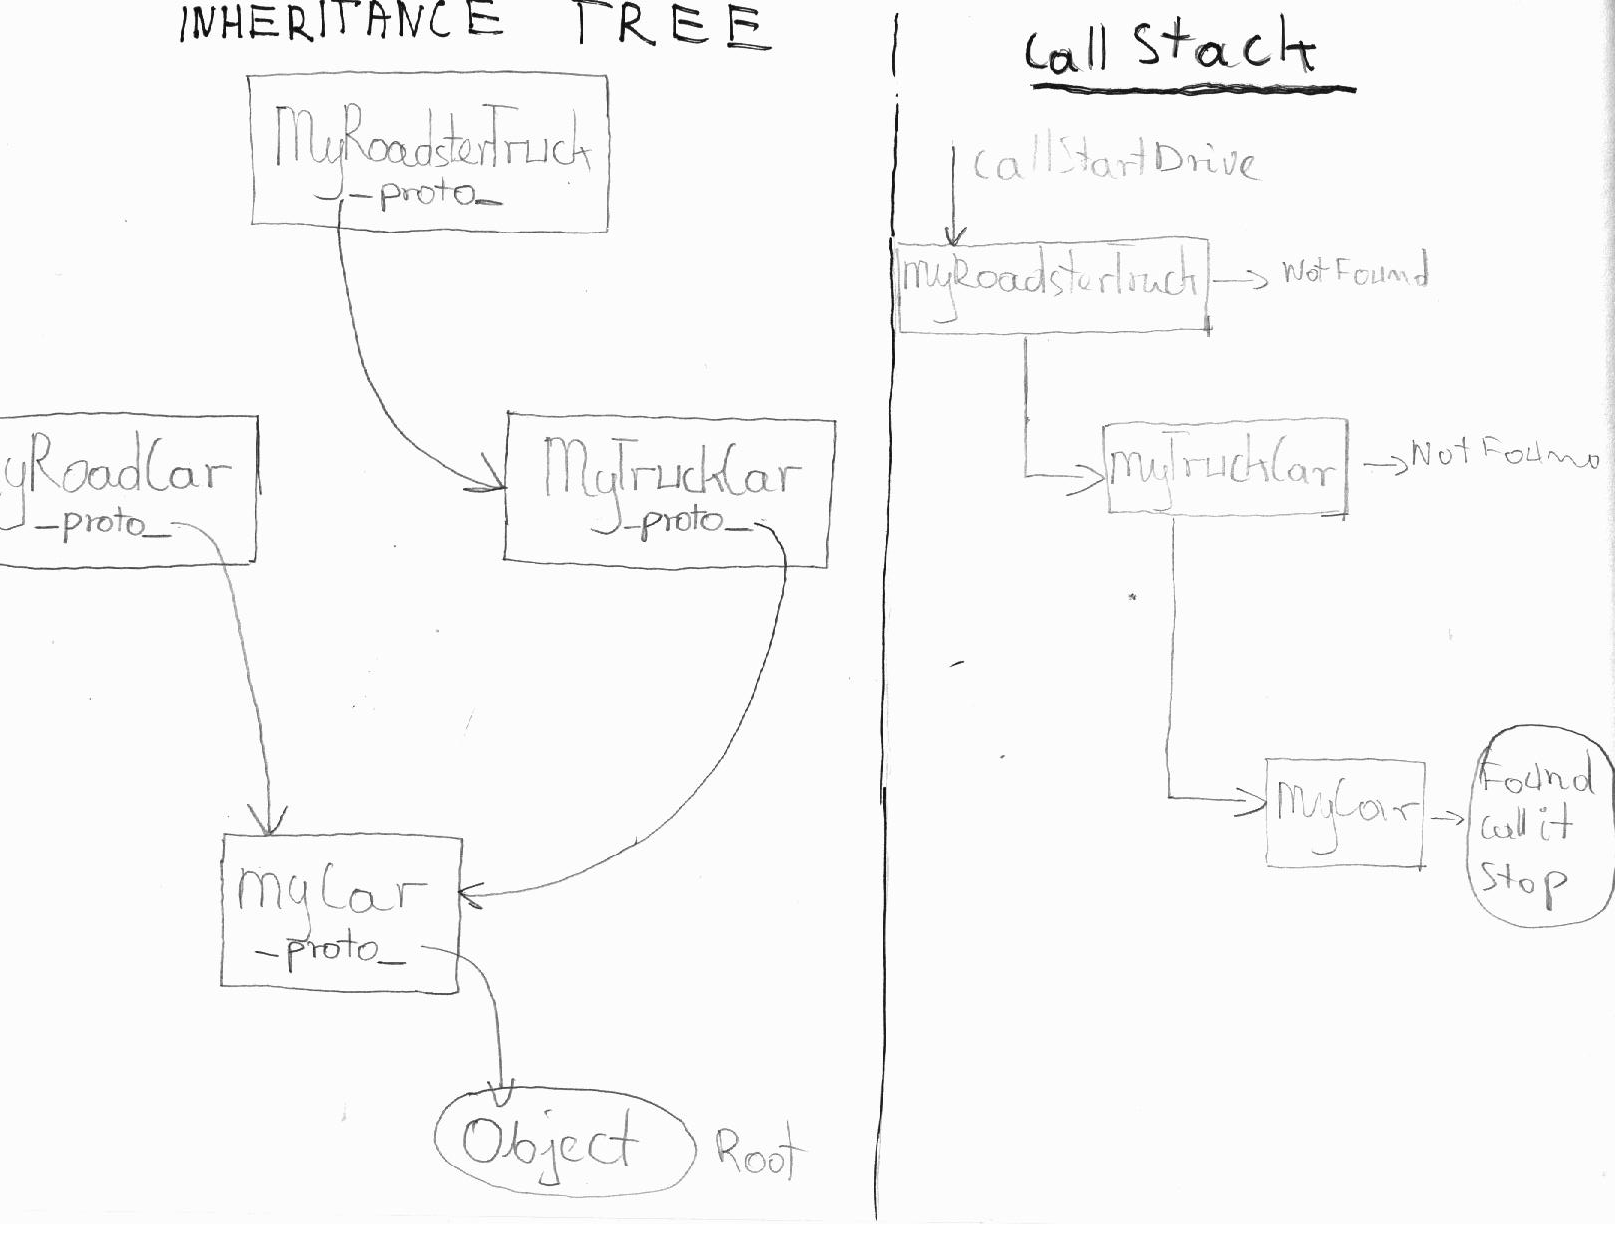 INHERITANCE TREE
MyRoadsterTruck
_proto_
yRoadCar
_proto_
MyTruckCar
_proto_
myCar
_proto_
Object
Root
Call Stack
callStartDrive
myRoadsterTruck
Not Found
myTruckCar
Not Found
MyCar
Found
call it
Stop